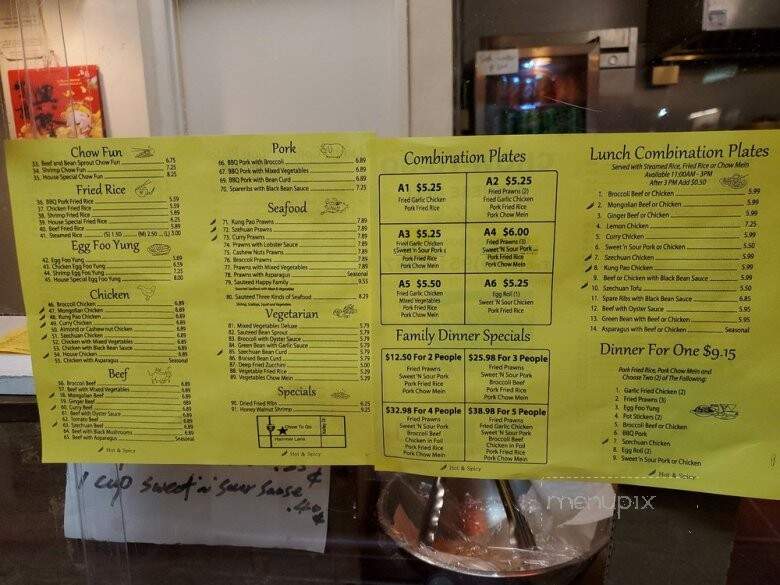 Chow Fun
33. Beef and Bean Sprout Chow Fun 6.75
34. Shrimp Chow Fun 7.25
35. House Special Chow Fun 8.25
Fried Rice
36. BBQ Pork Fried Rice 5.59
37. Chicken Fried Rice 5.59
38. Shrimp Fried Rice 5.89
39. House Special Fried Rice 6.25
40. Beef Fried Rice 5.89
41. Steamed Rice (S) 1.50 (M) 2.50 (L) 3.00
Egg Foo Yung
42. Egg Foo Yung 5.89
43. Chicken Egg Foo Yung 6.59
44. Shrimp Egg Foo Yung 7.25
45. House Special Egg Foo Yung 8.00
Chicken
46. Broccoli Chicken 6.89
47. Mongolian Chicken 6.89
48. Kung Pao Chicken 6.89
49. Curry Chicken 6.89
50. Almond or Cashew nut Chicken 6.89
51. Szechuan Chicken 6.89
52. Chicken with Mixed Vegetables 6.89
53. Chicken with Black Bean Sauce 6.89
54. House Chicken 6.89
55. Chicken with Asparagus Seasonal
Beef
56. Broccoli Beef 6.89
57. Beef with Mixed Vegetables 6.89
58. Mongolian Beef 6.89
59. Ginger Beef 6.89
60. Curry Beef 6.89
61. Beef with Oyster Sauce 6.89
62. Tomato Beef 6.89
63. Szechuan Beef 6.89
64. Beef with Black Mushrooms 6.89
65. Beef with Asparagus Seasonal
Hot & Spicy
Pork
66. BBQ Pork with Broccoli 6.89
67. BBQ Pork with Mixed Vegetables 6.89
68. BBQ Pork with Bean Curd 6.89
70. Spareribs with Black Bean Sauce 7.25
Seafood
71. Kung Pao Prawns 7.89
72. Szehuan Prawns 7.89
73. Curry Prawns 7.89
74. Prawns with Lobster Sauce 7.89
75. Cashew Nuts Prawns 7.89
76. Broccoli Prawns 7.89
77. Prawns with Mixed Vegetables 7.89
78. Prawns with Asparagus Seasonal
79. Sauteed Happy Family 9.55
80. Sauteed Three Kinds of Seafood 8.29
Vegetarian
81. Mixed Vegetables Deluxe 5.79
82. Sauteed Bean Sprout 5.79
83. Broccoli with Oyster Sauce 5.79
84. Green Bean with Garlic Sauce 5.79
85. Szechuan Bean Curd 5.79
86. Braised Bean Curd 5.79
87. Deep Fried Zucchini 5.00
88. Vegetable Fried Rice 5.29
89. Vegetables Chow Mein 5.29
Specials
90. Dried Fried Ribs 6.25
91. Honey Walnut Shrimp 9.25
Chow To Go
Hammer Lane
Hot & Spicy
Combination Plates
A1 $5.25
Fried Garlic Chicken
Pork Fried Rice
A2 $5.25
Fried Prawns (2)
Fried Garlic Chicken
Pork Fried Rice
Pork Chow Mein
A3 $5.25
Fried Garlic Chicken
Sweet'N Sour Pork
Pork Fried Rice
Pork Chow Mein
A4 $6.00
Fried Prawns (3)
Sweet'N Sour Pork
Pork Fried Rice
Pork Chow Mein
A5 $5.50
Fried Garlic Chicken
Mixed Vegetables
Pork Fried Rice
Pork Chow Mein
A6 $5.25
Egg Roll (1)
Sweet 'N Sour Chicken
Pork Fried Rice
Family Dinner Specials
$12.50 For 2 People
Fried Prawns
Sweet 'N Sour Pork
Pork Fried Rice
Pork Chow Mein
$25.98 For 3 People
Fried Prawns
Sweet 'N Sour Pork
Broccoli Beef
Pork Fried Rice
Pork Chow Mein
$32.98 For 4 People
Fried Prawns
Sweet 'N Sour Pork
Broccoli Beef
Chicken in Foil
Pork Fried Rice
Pork Chow Mein
$38.98 For 5 People
Fried Prawns
Fried Garlic Chicken
Sweet 'N Sour Pork
Broccoli Beef
Chicken in Foil
Pork Fried Rice
Pork Chow Mein
Hot & Spicy
Lunch Combination Plates
Served with Steamed Rice, Fried Rice or Chow Mein
Available 11:00AM - 3PM
After 3 PM Add $0.50
1. Broccoli Beef or Chicken 5.99
2. Mongolian Beef or Chicken 5.99
3. Ginger Beef or Chicken 5.99
4. Lemon Chicken 7.25
5. Curry Chicken 5.99
6. Sweet 'n Sour Pork or Chicken 5.50
7. Szechuan Chicken 5.99
8. Kung Pao Chicken 5.99
9. Beef or Chicken with Black Bean Sauce 5.99
10. Szechuan Tofu 5.50
11. Spare Ribs with Black Bean Sauce 6.85
12. Beef with Oyster Sauce 5.95
13. Green Bean with Beef or Chicken 5.95
14. Asparagus with Beef or Chicken Seasonal
Dinner For One $9.15
Pork Fried Rice, Pork Chow Mein and
Choose Two (2) of The Following:
1. Garlic Fried Chicken (2)
2. Fried Prawns (3)
3. Egg Foo Yung
4. Pot Stickers (2)
5. Broccoli Beef or Chicken
6. BBQ Pork
7. Szechuan Chicken
8. Egg Roll (2)
9. Sweet 'n Sour Pork or Chicken
Hot & Spicy
1 cup sweet 'n' sour sause
.40¢
menupix